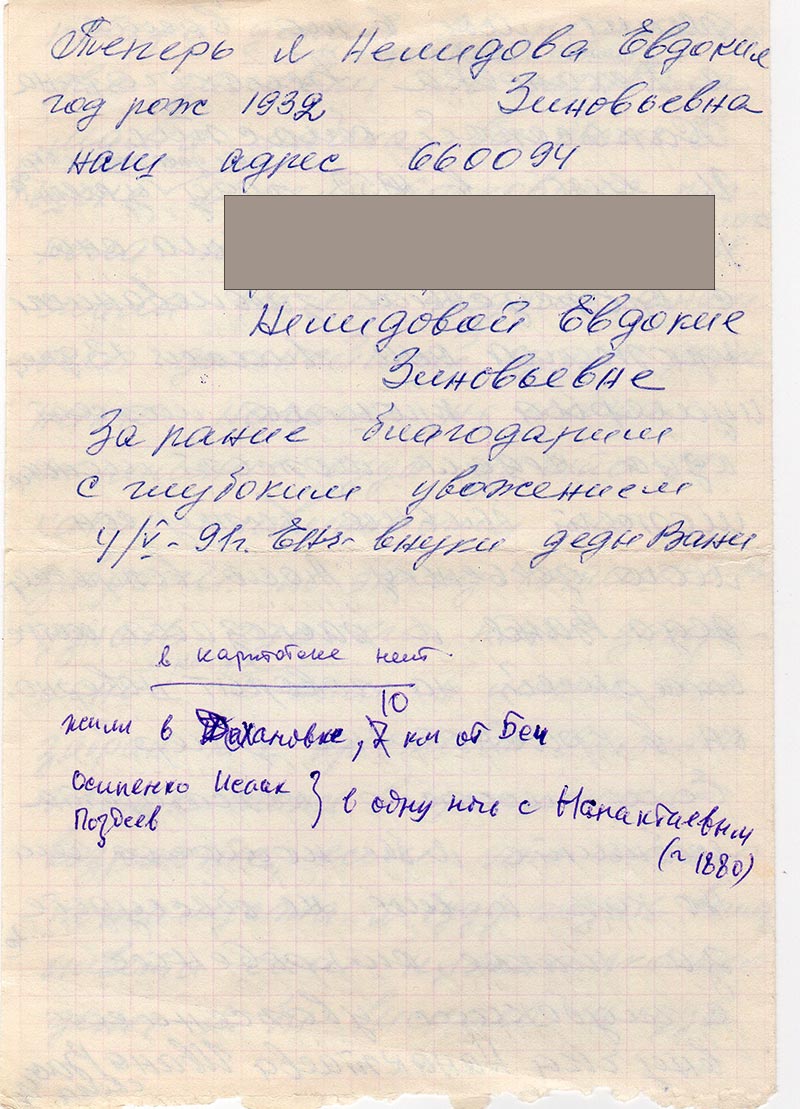 Теперь я Нелидова Евдокия
год рож 1932 Зиновьевна
наш адрес 660094
Нелидовой Евдокие
Зиновьевне
За рание благодарим
с глубоким уважением
4/V-91г. внуки деди Вани
в картотеке нет
10
жили в км от Беи
Осипенко Исаак
Поздеев } в одну ночь с Напактаевым
(~1880)